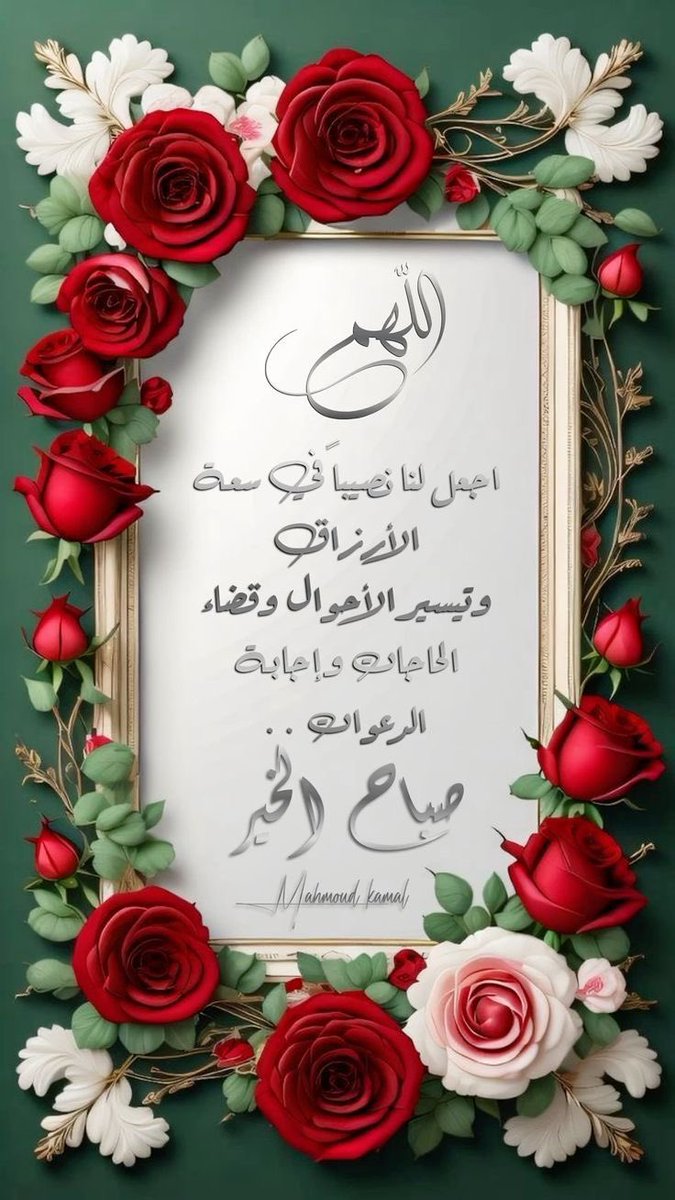 اللّهم
اجعل لنا نصيباً في سعة
الأرزاق
وتيسير الأحوال وقضاء
الحاجات وإجابة
الدعوات . .
صباح الخير
Mahmoud kamal